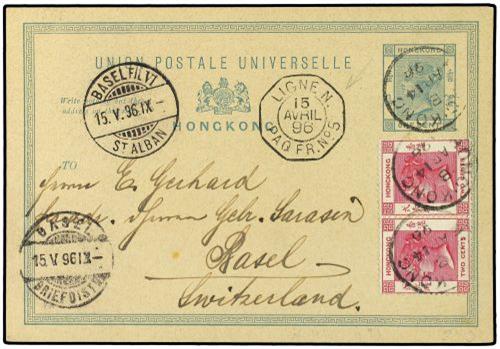 UNION POSTALE UNIVERSELLE
HONGKONG
TO
BASEL FIL. VI
15.V.96.IX-
ST ALBAN
LIGNE N.
15
AVRIL
96
PAQ. FR. No 5
HONGKONG
HONGKONG
TWO CENTS
HONGKONG
TWO CENTS
Herrn E. Gerhard
Herrn Gebr. Sarasin
Basel
Switzerland.
BASEL
15.V.96.IX-
BRIEFDIST